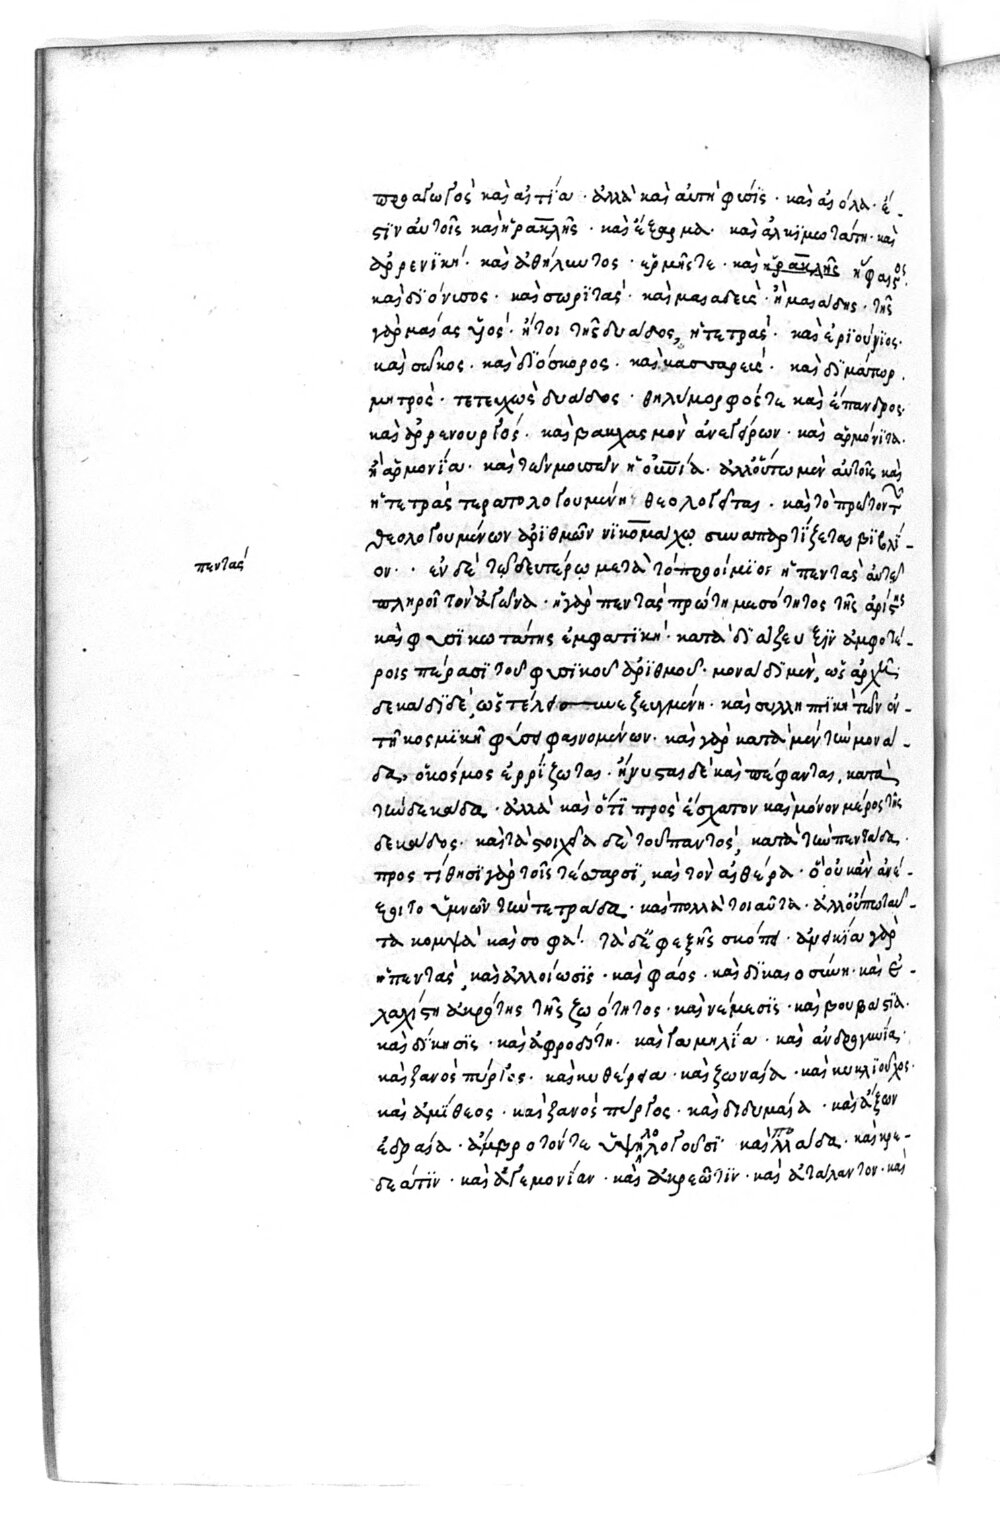 προαγωγὸς καὶ αἰτία · ἀλλὰ καὶ αὐτὴ φύσϊς · καὶ αἰόλα · ἐ-
στὶν αὐτοῖς καὶ ἡρακλῆς · καὶ ἔξαρμα · καὶ ἀλκιμωτάτη · καὶ
ἀρρενϊκή · καὶ ἀθήλυντος · ἑρμῆς τε · καὶ ἡρακλῆς ἥφαιστος ·
καὶ διόνισος · καὶ σωρίτας · καὶ μαιαδεὺς · ἢ μαιάδης · τῆς
γὰρ μαίας ὑὸς · ἤτοι τῆς δυάδος, ἡ τετράς · καὶ ἐρϊούνϊος ·
καὶ σῶκος · καὶ διόσκορος · καὶ κασσαρεύς · καὶ διμάτορ ·
μητρὸς · τετευχὼς δυάδος · θηλύμορφός τε καὶ ἔπανδρος ·
καὶ ἀρρενουργός · καὶ βακχασμὸν ἀνεγείρων · καὶ ἁρμονίτα ·
ἡ ἁρμονΐα · καὶ τῶν μουσῶν ἡ οὐνία · ἀλλ' οὕτω μὲν αὐτοῖς καὶ
ἡ τετρὰς τερατολογουμένη θεολογεῖται · καὶ τὸ πρῶτον τῶν
θεολογουμένων ἀριθμῶν νϊκομάχῳ συναπαρτίζεται βϊβλί-
ον · · ἐν δὲ τῷ δευτέρῳ μετὰ τὸ προοίμιον ἡ πεντὰς αὐτῷ
πεντάς
πληροῖ τὸν ἀγῶνα · ἡ γὰρ πεντὰς πρώτη μεσότητος τῆς ἀρίστης
καὶ φυσϊκωτάτης ἐμφατϊκή · κατὰ διάζευξϊν ἀμφοτέ-
ροις πέρασϊ τοῦ φυσϊκοῦ ἀριθμοῦ · μονάδϊ μὲν, ὡς ἀρχῇ ·
δεκάδϊ δὲ, ὡς τέλει συνεζευγμένη · καὶ συλληπτϊκὴ τῶν ἐν
τῇ κοσμϊκῇ φύσει φαινομένων · καὶ γὰρ κατὰ μὲν τὴν μονά-
δα, ὁ κόσμος ἐρρίζωται · ἤνυσται δὲ καὶ πέφανται, κατὰ
τὴν δεκάδα · ἀλλὰ καὶ ὅτϊ πρὸς ἔσχατον καὶ μόνον μέρος τῆς
δεκάδος · καὶ τὰ στοιχεῖα δὲ τοῦ παντὸς, κατὰ τὴν πεντάδα ·
προστίθησϊ γὰρ τοῖς τέσσαρσϊ, καὶ τὸν αἰθέρα · ὃ οὐκ ἀνέ-
χοιτο ὑμνῶν τὴν τετράδα · καὶ πολλὰ τοιαῦτα · ἀλλ' οὔπω ταῦ-
τα κομψὰ καὶ σοφά · τὰ δ' ἐφεξῆς σκόπει · ἀνεικία γὰρ
ἡ πεντάς, καὶ ἀλλοίωσϊς · καὶ φάος · καὶ δικαιοσύνη · καὶ ἐ-
λαχίστη ἀκρότης τῆς ζωότητος · καὶ νέμεσϊς · καὶ βουβαστία ·
καὶ δίκησϊς · καὶ ἀφροδίτη · καὶ γαμηλΐα · καὶ ἀνδρογυνία ·
καὶ ζανὸς πύργος · καὶ κυθέρεια · καὶ ζωναία · καὶ κυκλϊοῦχος ·
καὶ ἀμίθεος · καὶ ζανὸς πύργος · καὶ διδυμαία · καὶ ἄξων
ἑδραία · ἄμβροτόν τε ὑψηλολογοῦσϊ · καὶ παλλάδα · καὶ κρε-
δεάτϊν · καὶ ἀγεμονίαν · καὶ ἀκρεῶτϊν · καὶ ἀτάλαντον · καὶ